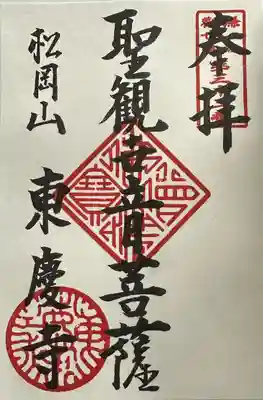 奉拝
聖観世音菩薩
松岡山
東慶寺